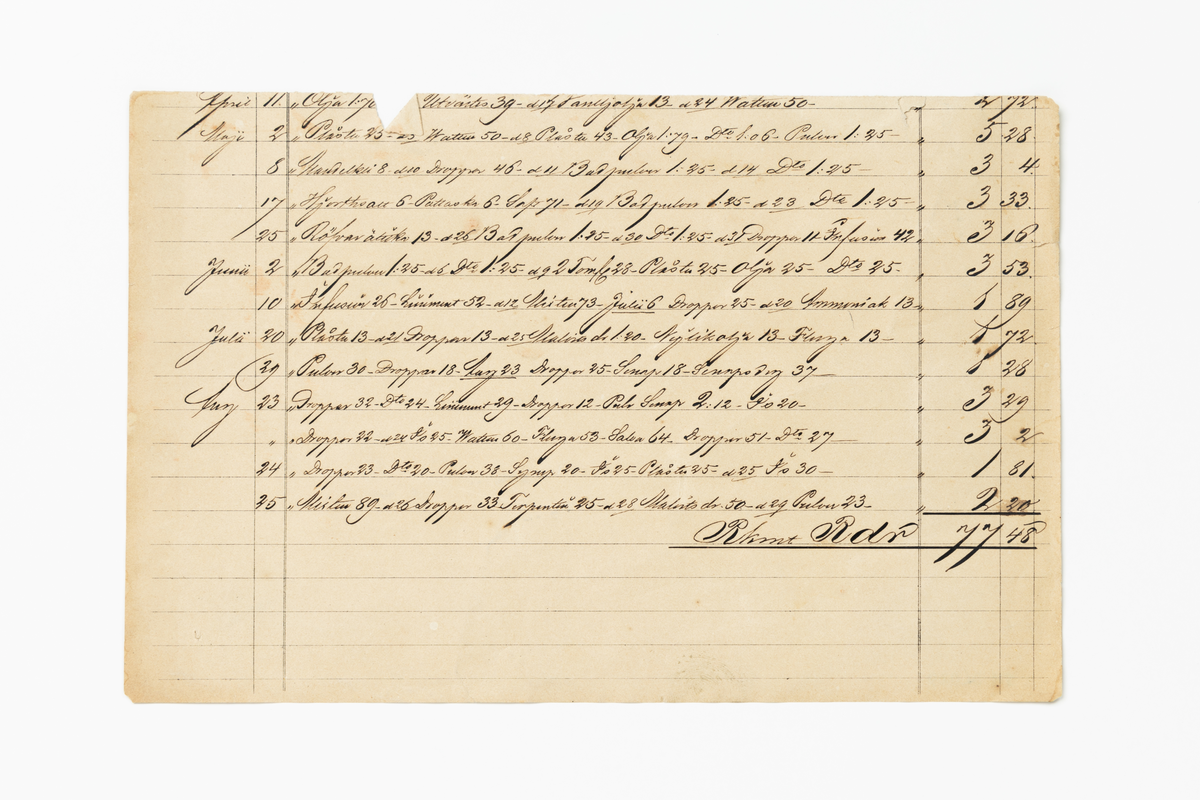 April 11. „ Olja 1: Utvärtes 39 - d 17 13 - d 24 Watten 50 - „ 2 72.
Maji 2 „ Plåster 25 - Watten 50 - d 8 Plåster 43 - Olja 1:79 - Dto 1:06 - Pulver 1:25 - „ 5 28
8 „ 8 d 10 Droppar 46 - d 11 Badpulver 1:25 - d 14 Dto 1:25 - „ 3 4.
17 „ Hjorthsalt 6 - Pottaska 6 - 71 - d 19 Badpulver 1:25 - d 23 Dto 1:25 - „ 3 33.
25 „ Röfvarättika 13 - d 26 Badpulver 1:25 - d 30 Dto 1:25 - d 31 Droppar 11 Infusion 42 „ 3 16.
Junii 2 „ Badpulver 1:25 - d 6 Dto 1:25 - d 9 2 28 - Plåster 25 - Olja 25 - Dto 25 - „ 3 53.
10 „ Infusion 26 - Liniment 52 - d 12 Mixtur 73 - Julii 6 Droppar 25 - d 20 Ammoniak 13 „ 1 89
Julii 20 „ Plåster 13 - d 21 Droppar 13 - d 25 1:20 - Nejlikolja 13 - Fluga 13 - „ 1 72.
29 „ Pulver 30 - Droppar 18 - Aug 23 Droppar 25 - Senap 18 - Senapsdeg 37 - „ 1 28
Aug 23 „ Droppar 32 - Dto 24 - Liniment 29 - Droppar 12 - Pulv Senap 2:12 - Is 20 - „ 3 29
„ „ Droppar 22 - d 24 Is 25 - Watten 60 - Fluga 53 - Salva 64. Droppar 51 - Dto 27 - „ 3 2
24 „ Droppar 23 - Dto 20 - Pulver 38 - Syrup 20 - Is 25 - Plåster 25 - d 25 Is 30 - „ 1 81.
25 „ Mixtur 89 - d 26 Droppar 33 Terpentin 25 - d 28 50 - d 29 Pulver 23 - „ 2 20
Rkmt Rdr 77 48